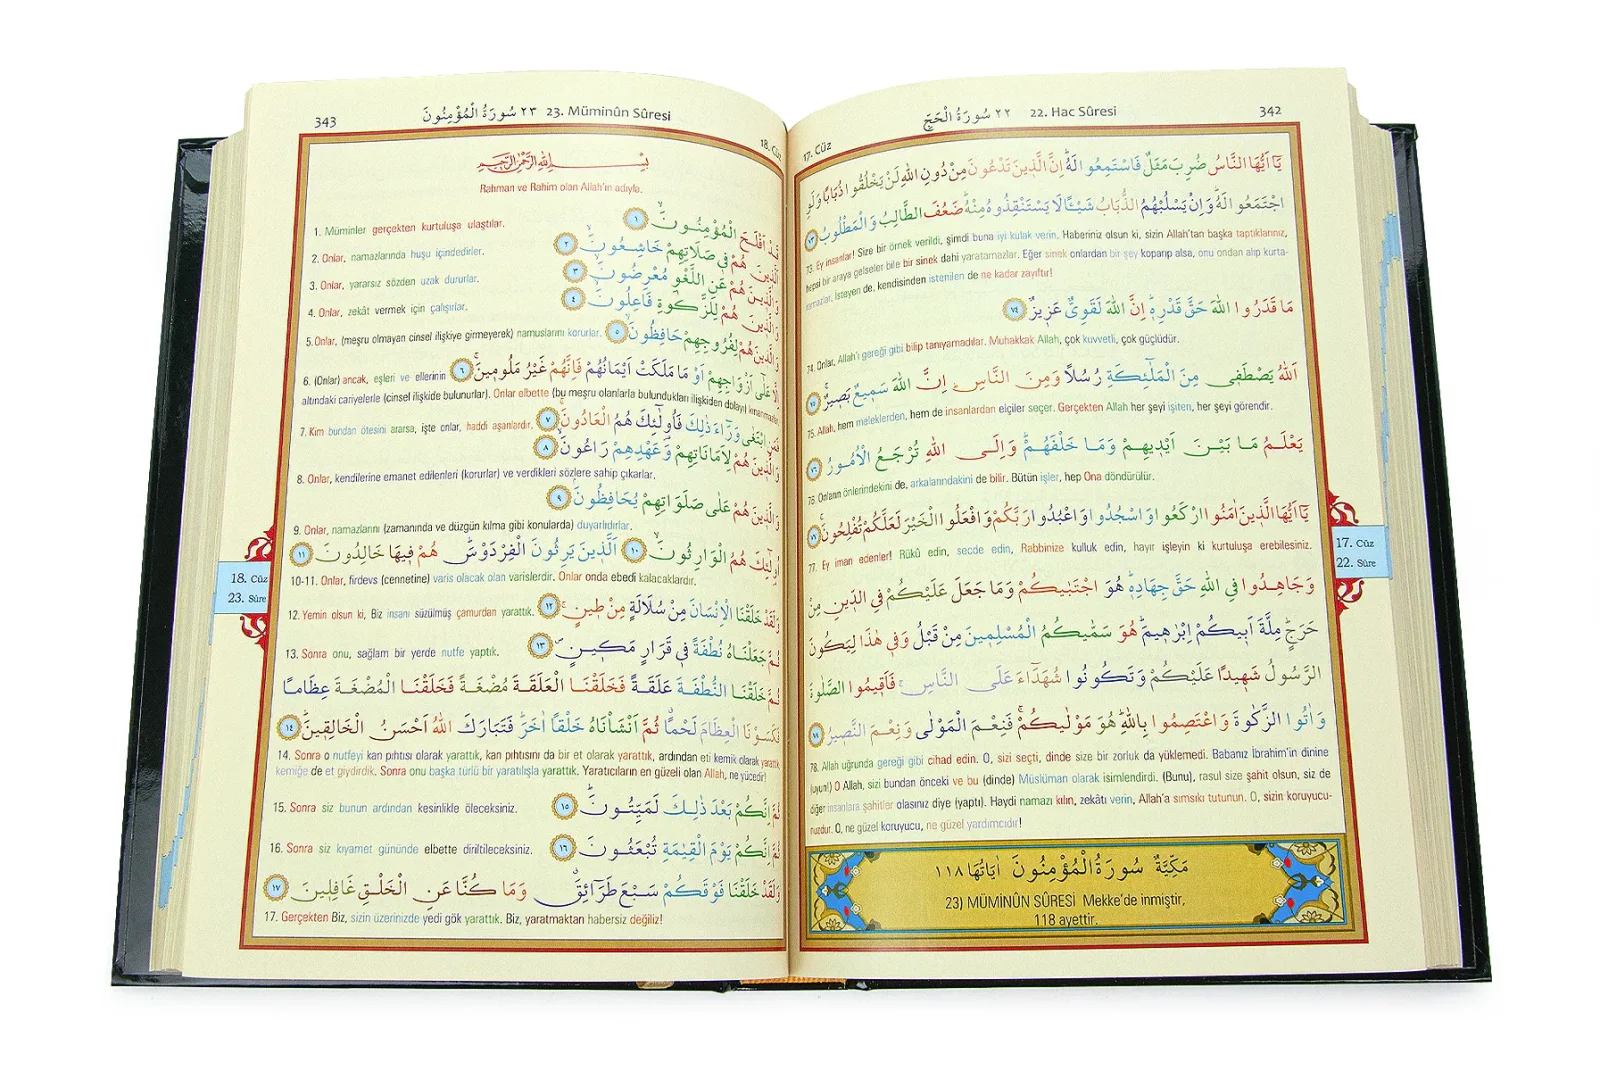 342
22. Hac Sûresi
٢٢ سُورَةُ الْحَجِّ
17. Cüz
يَٓا اَيُّهَا النَّاسُ ضُرِبَ مَثَلٌ فَاسْتَمِعُوا لَهُ اِنَّ الَّذٖينَ تَدْعُونَ مِنْ دُونِ اللّٰهِ لَنْ يَخْلُقُوا ذُبَابًا وَلَوِ
اجْتَمَعُوا لَهُ وَاِنْ يَسْلُبْهُمُ الذُّبَابُ شَيْـًٔا لَا يَسْتَنْقِذُوهُ مِنْهُ ضَعُفَ الطَّالِبُ وَالْمَطْلُوبُ ٧٣
73. Ey insanlar! Size bir örnek verildi, şimdi buna iyi kulak verin. Haberiniz olsun ki, sizin Allah'tan başka taptıklarınız,
hepsi bir araya gelseler bile bir sinek dahi yaratamazlar. Eğer sinek onlardan bir şey koparıp alsa, onu ondan alıp kurta-
ramazlar. İsteyen de, kendisinden istenilen de ne kadar zayıftır!
مَا قَدَرُوا اللّٰهَ حَقَّ قَدْرِهٖ اِنَّ اللّٰهَ لَقَوِىٌّ عَزٖيزٌ ٧٤
74. Onlar, Allah'ı gereği gibi bilip tanıyamadılar. Muhakkak Allah, çok kuvvetli, çok güçlüdür.
اَللّٰهُ يَصْطَفٖى مِنَ الْمَلٰٓئِكَةِ رُسُلًا وَمِنَ النَّاسِ اِنَّ اللّٰهَ سَمٖيعٌ بَصٖيرٌ ٧٥
75. Allah, hem meleklerden, hem de insanlardan elçiler seçer. Gerçekten Allah her şeyi işiten, her şeyi görendir.
يَعْلَمُ مَا بَيْنَ اَيْدٖيهِمْ وَمَا خَلْفَهُمْ وَاِلَى اللّٰهِ تُرْجَعُ الْاُمُورُ ٧٦
76. Onların önlerindekini de, arkalarındakini de bilir. Bütün işler, hep Ona döndürülür.
يَٓا اَيُّهَا الَّذٖينَ اٰمَنُوا ارْكَعُوا وَاسْجُدُوا وَاعْبُدُوا رَبَّكُمْ وَافْعَلُوا الْخَيْرَ لَعَلَّكُمْ تُفْلِحُونَ ٧٧
77. Ey iman edenler! Rükû edin, secde edin, Rabbinize kulluk edin, hayır işleyin ki kurtuluşa erebilesiniz.
وَجَاهِدُوا فِى اللّٰهِ حَقَّ جِهَادِهٖ هُوَ اجْتَبٰيكُمْ وَمَا جَعَلَ عَلَيْكُمْ فِى الدّٖينِ مِنْ
حَرَجٍ مِلَّةَ اَبٖيكُمْ اِبْرٰهٖيمَ هُوَ سَمّٰيكُمُ الْمُسْلِمٖينَ مِنْ قَبْلُ وَفٖى هٰذَا لِيَكُونَ
الرَّسُولُ شَهٖيدًا عَلَيْكُمْ وَتَكُونُوا شُهَدَٓاءَ عَلَى النَّاسِ فَاَقٖيمُوا الصَّلٰوةَ
وَاٰتُوا الزَّكٰوةَ وَاعْتَصِمُوا بِاللّٰهِ هُوَ مَوْلٰيكُمْ فَنِعْمَ الْمَوْلٰى وَنِعْمَ النَّصٖيرُ ٧٨
78. Allah uğrunda gereği gibi cihad edin. O, sizi seçti, dinde size bir zorluk da yüklemedi. Babanız İbrahim'in dinine
(uyun!) O Allah, sizi bundan önceki ve bu (dinde) Müslüman olarak isimlendirdi. (Bunu), rasul size şahit olsun, siz de
diğer insanlara şahitler olasınız diye (yaptı). Haydi namazı kılın, zekâtı verin, Allah'a sımsıkı tutunun. O, sizin koruyucu-
nuzdur. O, ne güzel koruyucu, ne güzel yardımcıdır!
مَكِّيَّةٌ سُورَةُ الْمُؤْمِنُونَ اٰيَاتُهَا ١١٨
23) MÜMİNÛN SÛRESİ Mekke'de inmiştir,
118 ayettir.
17. Cüz
22. Sûre
343
23. Müminûn Sûresi
٢٣ سُورَةُ الْمُؤْمِنُونَ
18. Cüz
بِسْمِ اللّٰهِ الرَّحْمٰنِ الرَّحٖيمِ
Rahman ve Rahim olan Allah'ın adıyla.
قَدْ اَفْلَحَ الْمُؤْمِنُونَ ١
1. Müminler gerçekten kurtuluşa ulaştılar.
اَلَّذٖينَ هُمْ فٖى صَلَاتِهِمْ خَاشِعُونَ ٢
2. Onlar, namazlarında huşu içindedirler.
وَالَّذٖينَ هُمْ عَنِ اللَّغْوِ مُعْرِضُونَ ٣
3. Onlar, yararsız sözden uzak dururlar.
وَالَّذٖينَ هُمْ لِلزَّكٰوةِ فَاعِلُونَ ٤
4. Onlar, zekât vermek için çalışırlar.
وَالَّذٖينَ هُمْ لِفُرُوجِهِمْ حَافِظُونَ ٥
5. Onlar, (meşru olmayan cinsel ilişkiye girmeyerek) namuslarını korurlar.
اِلَّا عَلٰٓى اَزْوَاجِهِمْ اَوْ مَا مَلَكَتْ اَيْمَانُهُمْ فَاِنَّهُمْ غَيْرُ مَلُومٖينَ ٦
6. (Onlar) ancak, eşleri ve ellerinin
altındaki cariyelerle (cinsel ilişkide bulunurlar). Onlar elbette (bu meşru olanlarla bulundukları ilişkiden dolayı) kınanmazlar.
فَمَنِ ابْتَغٰى وَرَٓاءَ ذٰلِكَ فَاُولٰٓئِكَ هُمُ الْعَادُونَ ٧
7. Kim bundan ötesini ararsa, işte onlar, haddi aşanlardır.
وَالَّذٖينَ هُمْ لِاَمَانَاتِهِمْ وَعَهْدِهِمْ رَاعُونَ ٨
8. Onlar, kendilerine emanet edilenleri (korurlar) ve verdikleri sözlere sahip çıkarlar.
وَالَّذٖينَ هُمْ عَلٰى صَلَوَاتِهِمْ يُحَافِظُونَ ٩
9. Onlar, namazlarını (zamanında ve düzgün kılma gibi konularda) duyarlıdırlar.
اُولٰٓئِكَ هُمُ الْوَارِثُونَ ١٠ اَلَّذٖينَ يَرِثُونَ الْفِرْدَوْسَ هُمْ فٖيهَا خَالِدُونَ ١١
10-11. Onlar, firdevs (cennetine) varis olacak olan varislerdir. Onlar onda ebedi kalacaklardır.
وَلَقَدْ خَلَقْنَا الْاِنْسَانَ مِنْ سُلَالَةٍ مِنْ طٖينٍ ١٢
12. Yemin olsun ki, Biz insanı süzülmüş çamurdan yarattık.
ثُمَّ جَعَلْنَاهُ نُطْفَةً فٖى قَرَارٍ مَكٖينٍ ١٣
13. Sonra onu, sağlam bir yerde nutfe yaptık.
ثُمَّ خَلَقْنَا النُّطْفَةَ عَلَقَةً فَخَلَقْنَا الْعَلَقَةَ مُضْغَةً فَخَلَقْنَا الْمُضْغَةَ عِظَامًا
فَكَسَوْنَا الْعِظَامَ لَحْمًا ثُمَّ اَنْشَاْنَاهُ خَلْقًا اٰخَرَ فَتَبَارَكَ اللّٰهُ اَحْسَنُ الْخَالِقٖينَ ١٤
14. Sonra o nutfeyi kan pıhtısı olarak yarattık, kan pıhtısını da bir et olarak yarattık, ardından eti kemik olarak yarattık
kemiğe de et giydirdik. Sonra onu başka türlü bir yaratılışla yarattık. Yaratıcıların en güzeli olan Allah, ne yücedir!
ثُمَّ اِنَّكُمْ بَعْدَ ذٰلِكَ لَمَيِّتُونَ ١٥
15. Sonra siz bunun ardından kesinlikle öleceksiniz.
ثُمَّ اِنَّكُمْ يَوْمَ الْقِيٰمَةِ تُبْعَثُونَ ١٦
16. Sonra siz kıyamet gününde elbette diriltileceksiniz.
وَلَقَدْ خَلَقْنَا فَوْقَكُمْ سَبْعَ طَرَٓائِقَ وَمَا كُنَّا عَنِ الْخَلْقِ غَافِلٖينَ ١٧
17. Gerçekten Biz, sizin üzerinizde yedi gök yarattık. Biz, yaratmaktan habersiz değiliz!
18. Cüz
23. Sûre